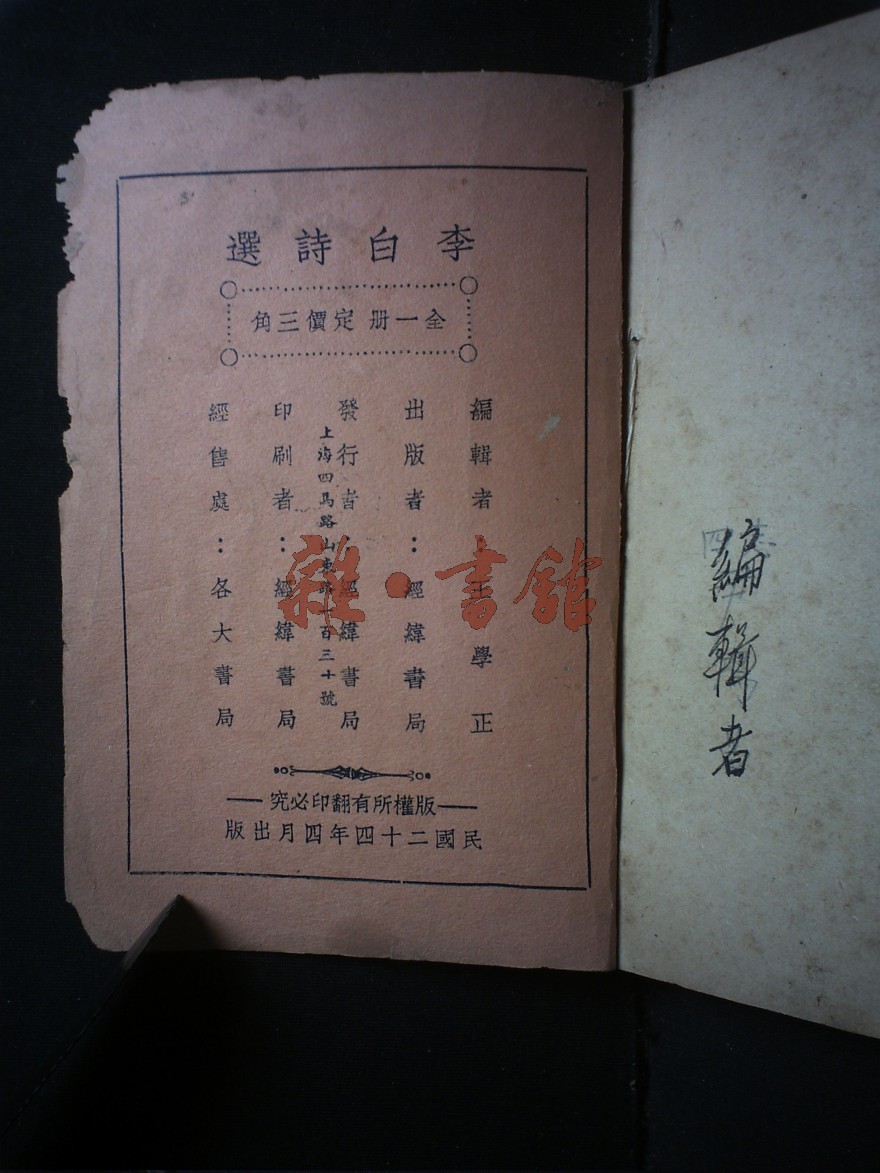 李白詩選
全一册 定價三角
編輯者：王學正
出版者：經緯書局
發行者：經緯書局
上海四馬路山東路一百三十號
印刷者：經緯書局
經售處：各大書局
版權所有翻印必究
民國二十四年四月出版
編輯者
雜·書舘